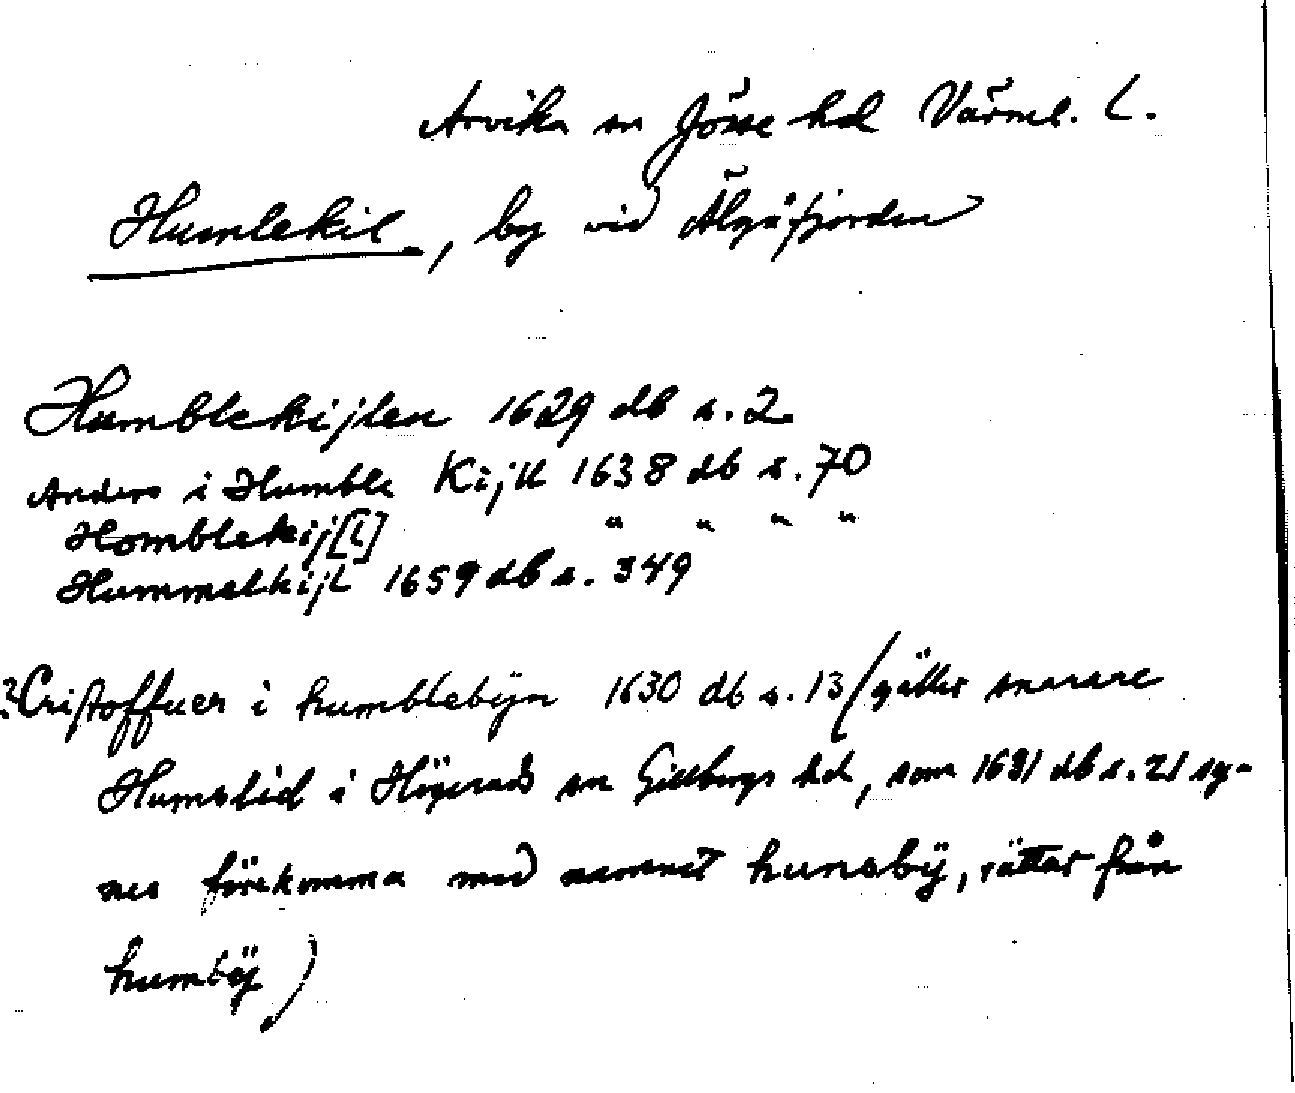 Arvika sn Jösse hd Värml. L.
Humlekil, by vid Älgåfjorden
Humblekijlen 1629 db s. 2
Anders i Humble Kijll 1638 db s. 70
Homblekij[l] " " " "
Hummelkijl 1659 db s. 349
? Cristoffuer i humblebÿn 1630 db s. 13 (gäller snarare
Humslid i Högeruds sn Gillbergs hd, som 1631 db s. 21 sy-
nes förekomma med namnet hunsbÿ, rättat från
humbÿ)